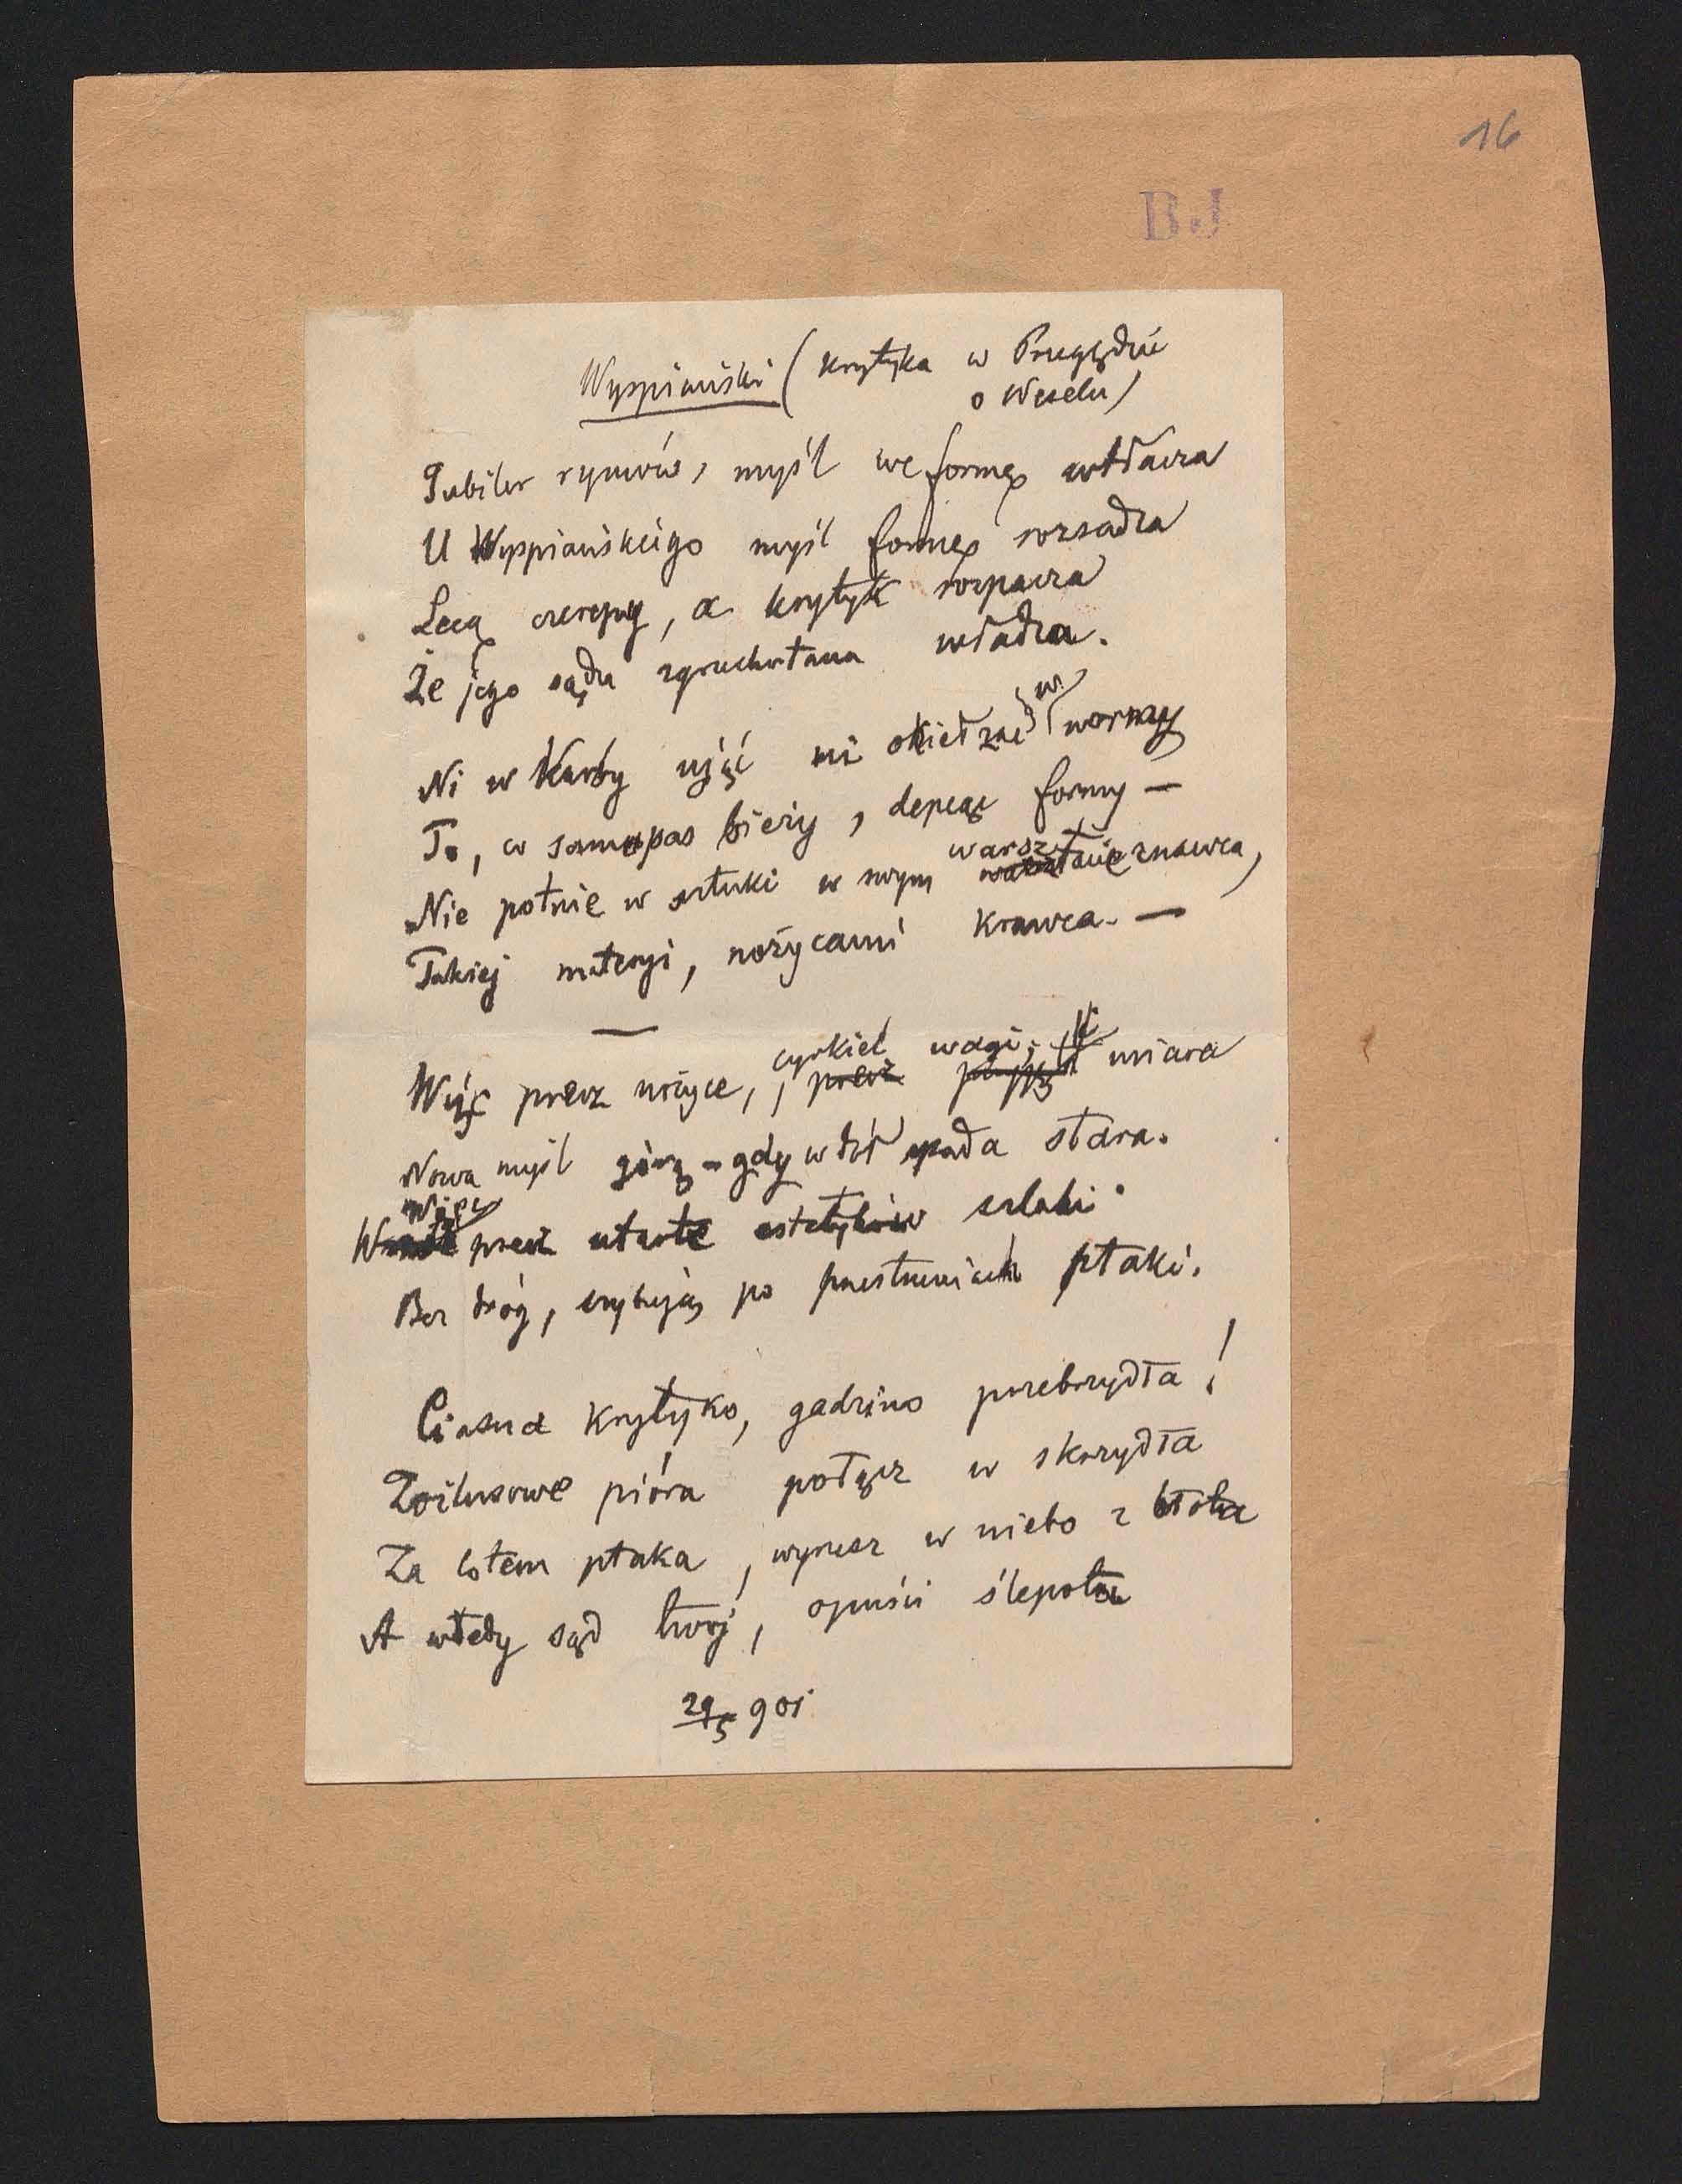 16
B.J
Wyspiański (krytyka w Przeglądzie
o Weselu)
Jubiler rymów, myśl we formę wtłacza
U Wyspiańskiego myśl formę rozsadza
Lecą czerepy, a krytyk rozpacza
Że jego sądu zgruchotana władza.
Ni w karby ująć ni okiełzać w normy
To, co samopas bieży, depcąc formy —
Nie potnie w sztuki w swym warsztacie znawca,
Takiej materyi, nożycami krawca. —
Więc precz nożyce, cyrkiel wagi, i miara
Nowa myśl górą – gdy w dół spada stara.
Więc precz utarte estetyków szlaki
Bez dróg, szybują po przestworzach ptaki.
Ciasna krytyko, gadzino przebrzydła!
Zoilusowe pióra połącz w skrzydła
Za lotem ptaka, wyrusz w niebo z błota
A wtedy sąd twój, opuści ślepota
29/5 901